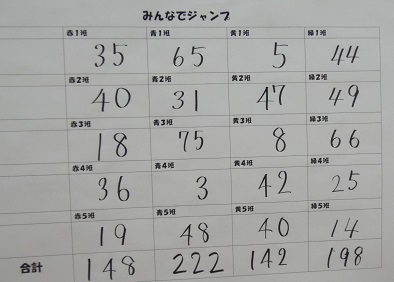 みんなでジャンプ
赤1班 青1班 黄1班 緑1班
35 65 5 44
赤2班 青2班 黄2班 緑2班
40 31 47 49
赤3班 青3班 黄3班 緑3班
18 75 8 66
赤4班 青4班 黄4班 緑4班
36 3 42 25
赤5班 青5班 黄5班 緑5班
19 48 40 14
合計 148 222 142 198